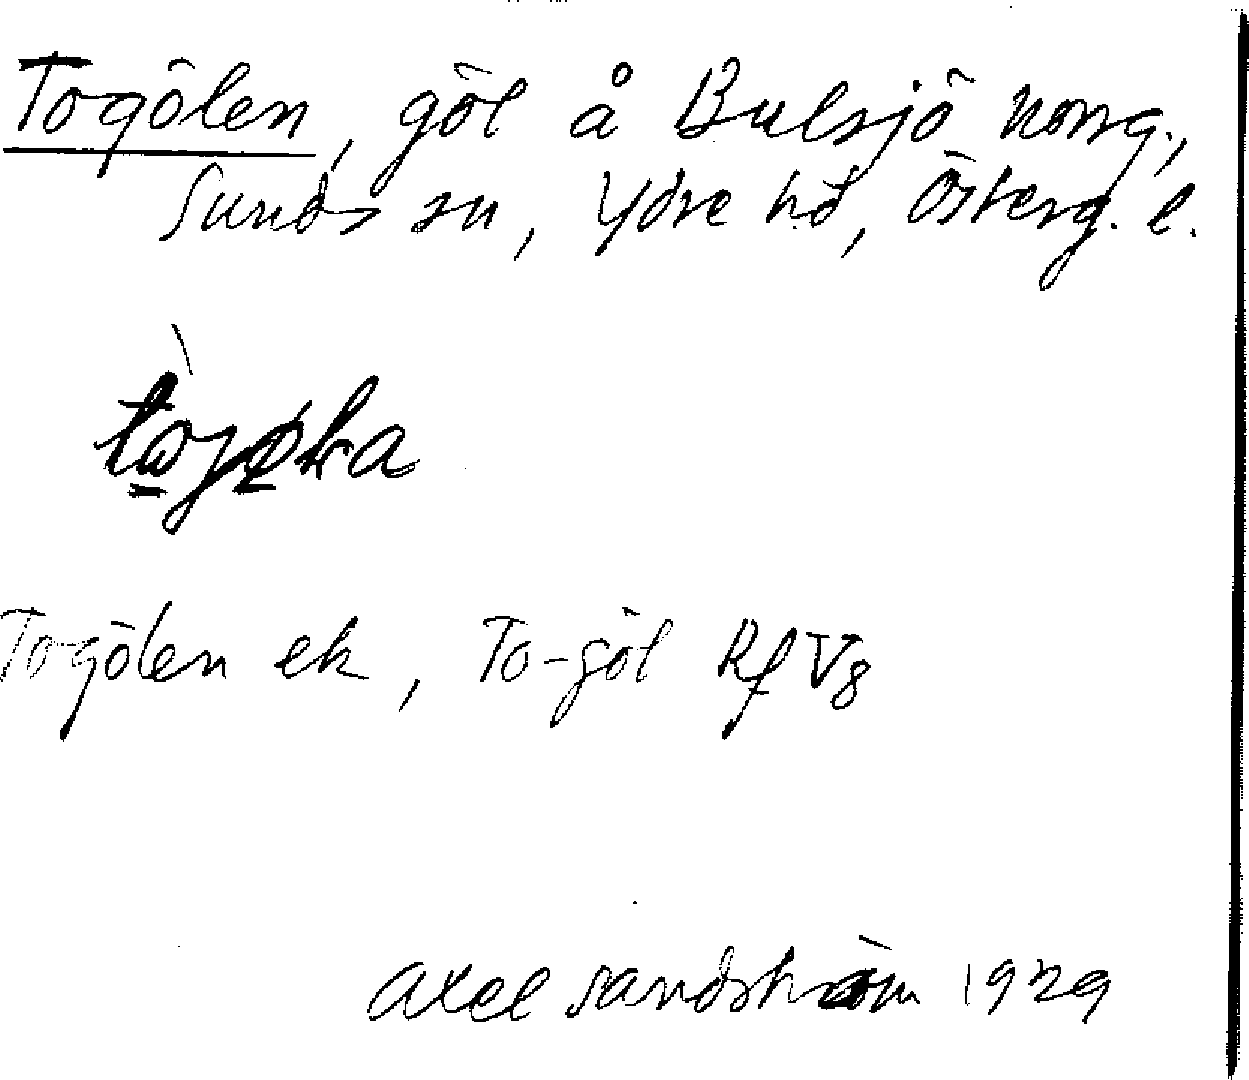 Togölen, göl å Bulsjö kong.,
Sunds sn, Ydre hd, Österg. l.
Togölen ek, To-göl Rf V8
Axel Sandström 1929